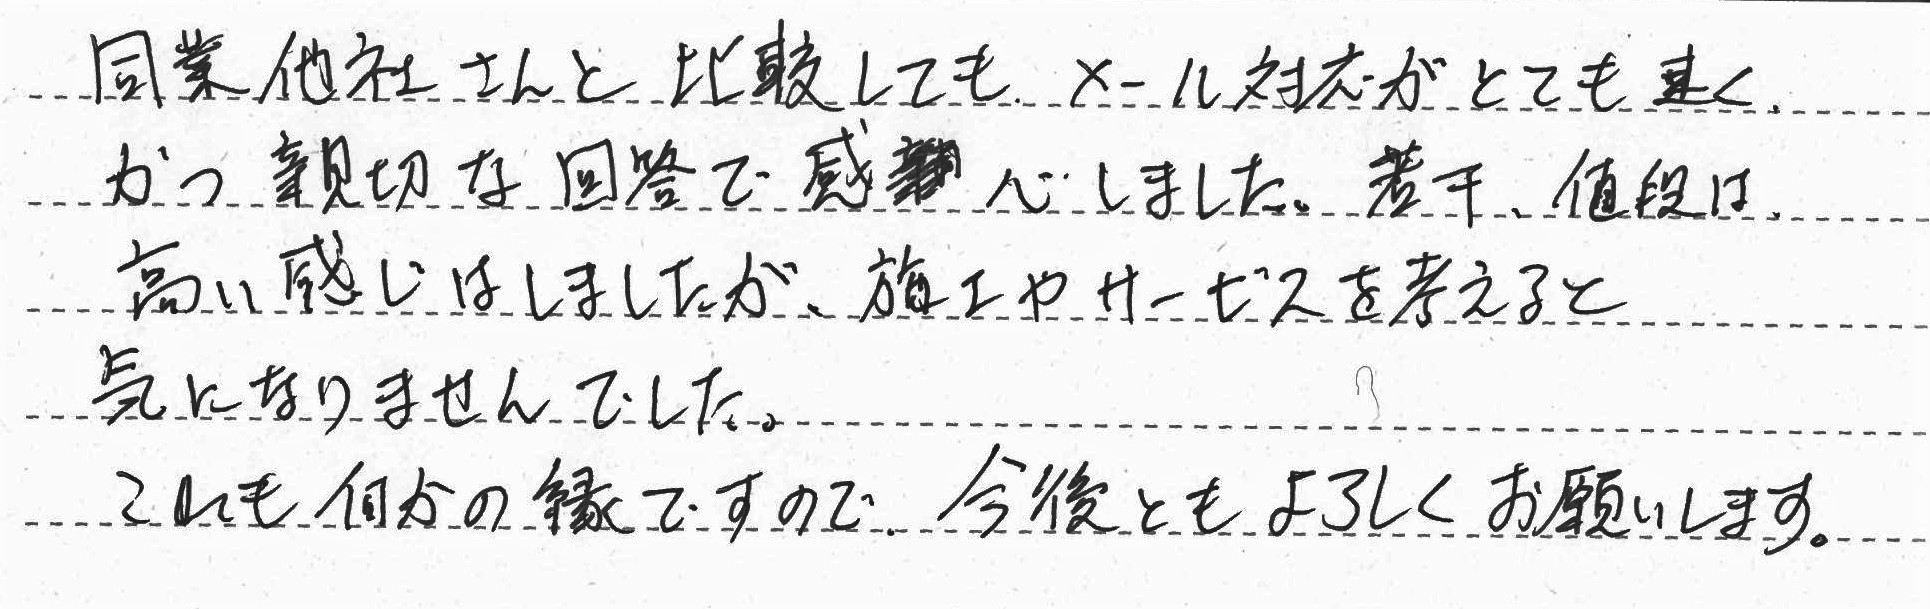 同業他社さんと比較しても、メール対応がとても速く、
かつ親切な回答で感心しました。若干、値段は、
高い感じはしましたが、施工やサービスを考えると
気になりませんでした。
これも何かの縁ですので、今後ともよろしくお願いします。